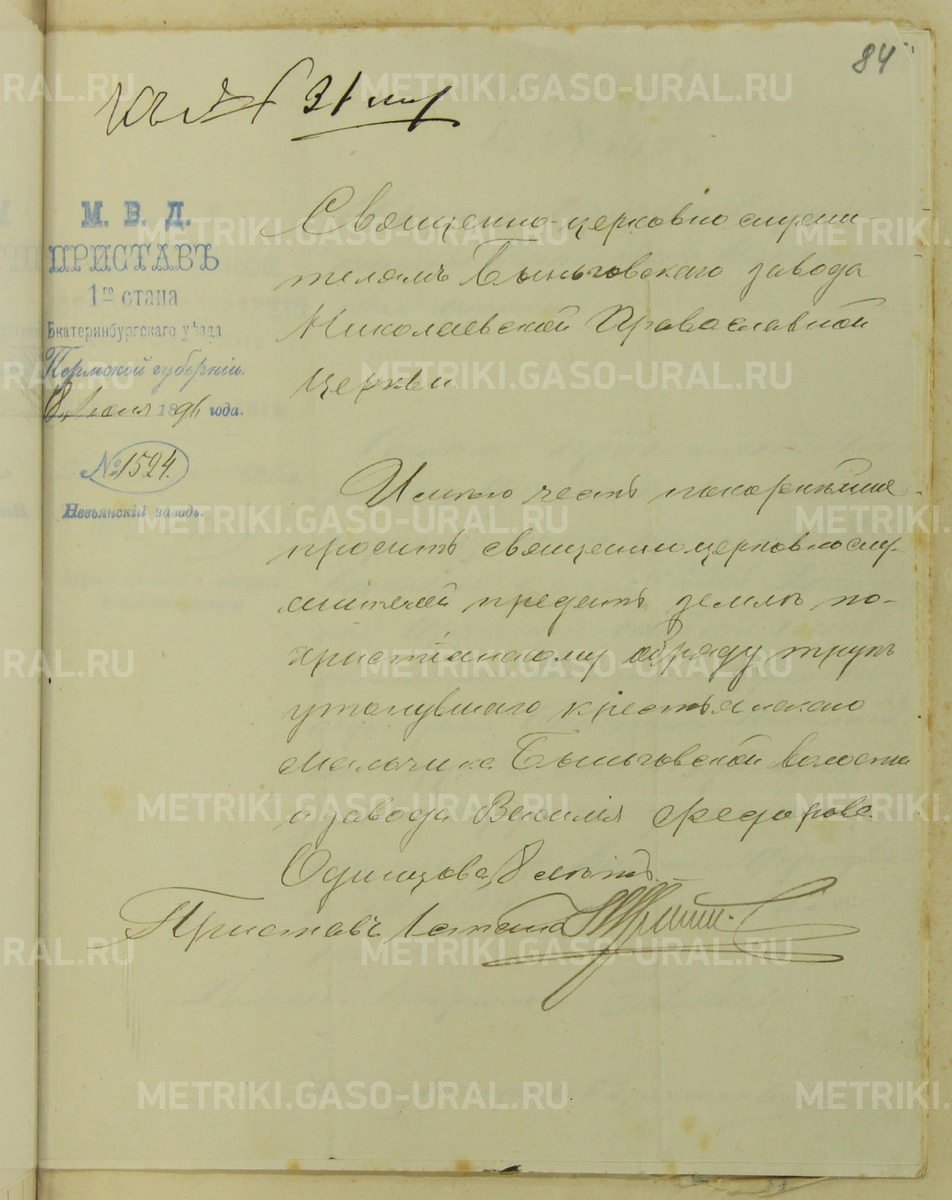 84
Къ № 31 му
М. В. Д.
ПРИСТАВЪ
1го стана
Екатеринбургскаго уѣзда
Пермской губерніи.
8 1896 года.
№ 1524.
Невьянскій заводъ.
Священно-церковно служи
телямъ Быньговскаго завода
Николаевской Православной
Церкви
Имѣю честь покорнѣйше
просить священноцерковнослу
жителей предать землѣ по-
христіанскому обряду трупъ
утонувшаго крестьянскаго
мальчика Быньговской волости
и завода Василія Федорова
Одинцова, 8 лѣтъ.
Приставъ 1 стана
METRIKI.GASO-URAL.RU